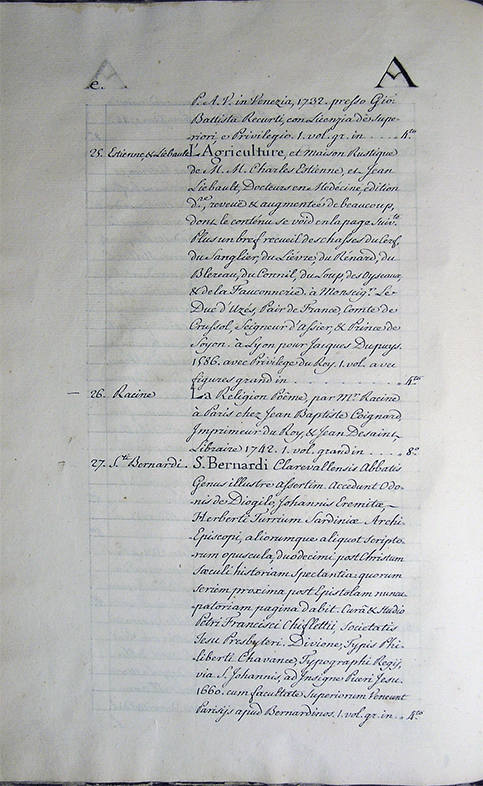 e.
A
P. A. V. in Venezia, 1732. presso Gio:
Battista Recurti, con Licenzia de Supe-
riori, e Privilegio. 1. vol. gr. in . . . . . 4.to
25. Estienne, & Liebault L'Agriculture, et maison Rustique
de M. M. Charles Estienne, et Jean
Liebault, Docteurs en Medécine, édition
d.re, reveüe & augmentée de beaucoup,
dont le contenu se void en la page suiv.te
Plus un bref recueil des chasses du Cerf,
du Sanglier, du Liévre, du Rénard, du
Blereau, du Connil, du Loup, des Oyseaux,
& de la Fauconnerie. à Monseig.r Le
Duc d'Uzés, Pair de France, Comte de
Crussol, Seigneur d'Assier, & Prince de
Soyon. à Lyon pour Jacques Dupuys.
1586. avec Privilege du Roy. 1. vol. avec
figures grand in . . . . . . . . . . . . 4.to
26. Racine La Religion Poëme, par M.r Racine
à Paris chez Jean Baptiste Coignard,
Imprimeur du Roy, & Jean Desaint
Libraire 1742. 1. vol. grand in . . . . 8.o
27. S.ti Bernardi. S. Bernardi Clarevallensis Abbatis
Genus illustre assertum. Accedunt Odo-
nis de Diogilo, Johannis Eremitæ,
Herberti Turrium Sardiniæ Archi-
Episcopi, aliorumque aliquot Scripto-
rum opuscula, duodecimi post Christum
Sæculi historiam Spectantia: quorum
seriem proxima post Epistolam nuncu-
patoriam pagina dabit. Curâ & Studio
Petri Francisci Chiffletii, Societatis
Jesu Presbyteri. Divione, Typis Phi-
liberti Chavance, Typographi Regij,
via S. Johannis, ad Insigne Pueri Jesu.
1660. cum facultate Superiorum Veneunt
Parisijs apud Bernardinos. 1. vol. gr. in . . 4.to